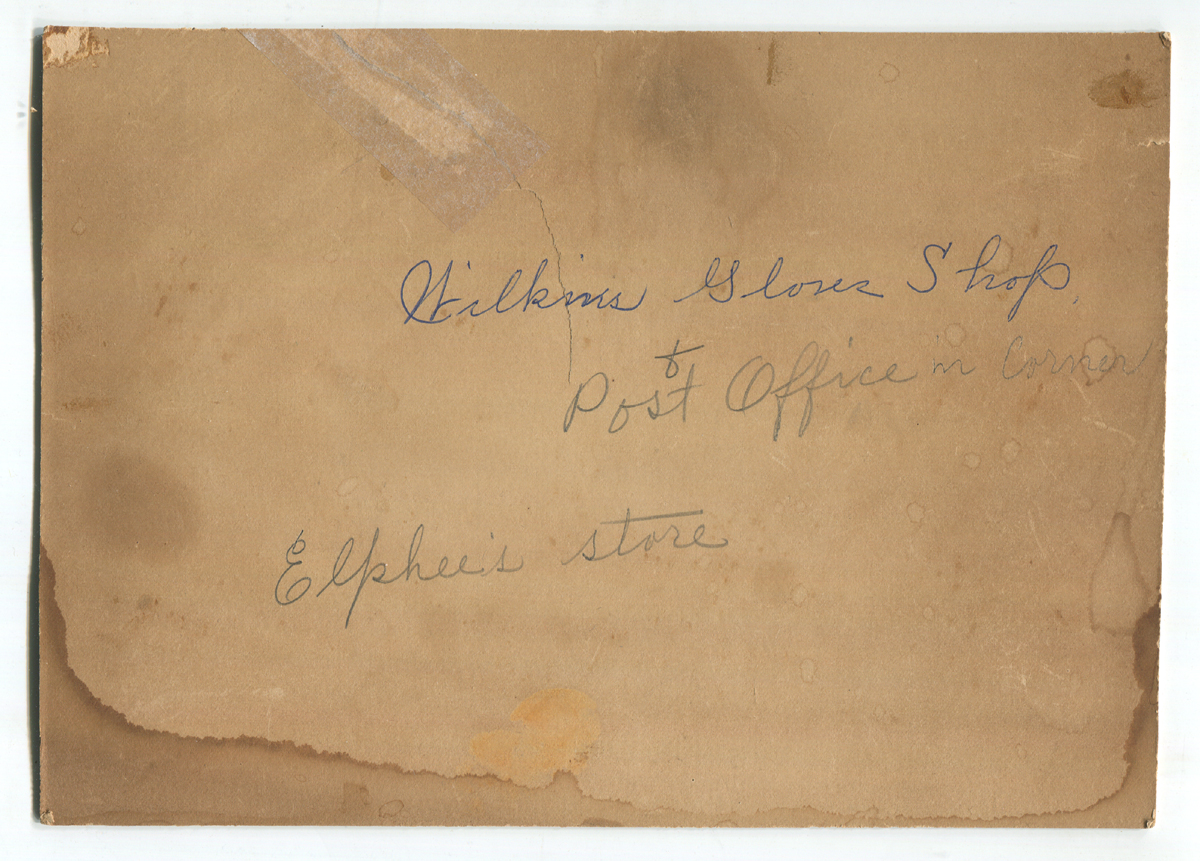 Wilkins Gloves Shop,
& Post Office in Corner
Elphee's store